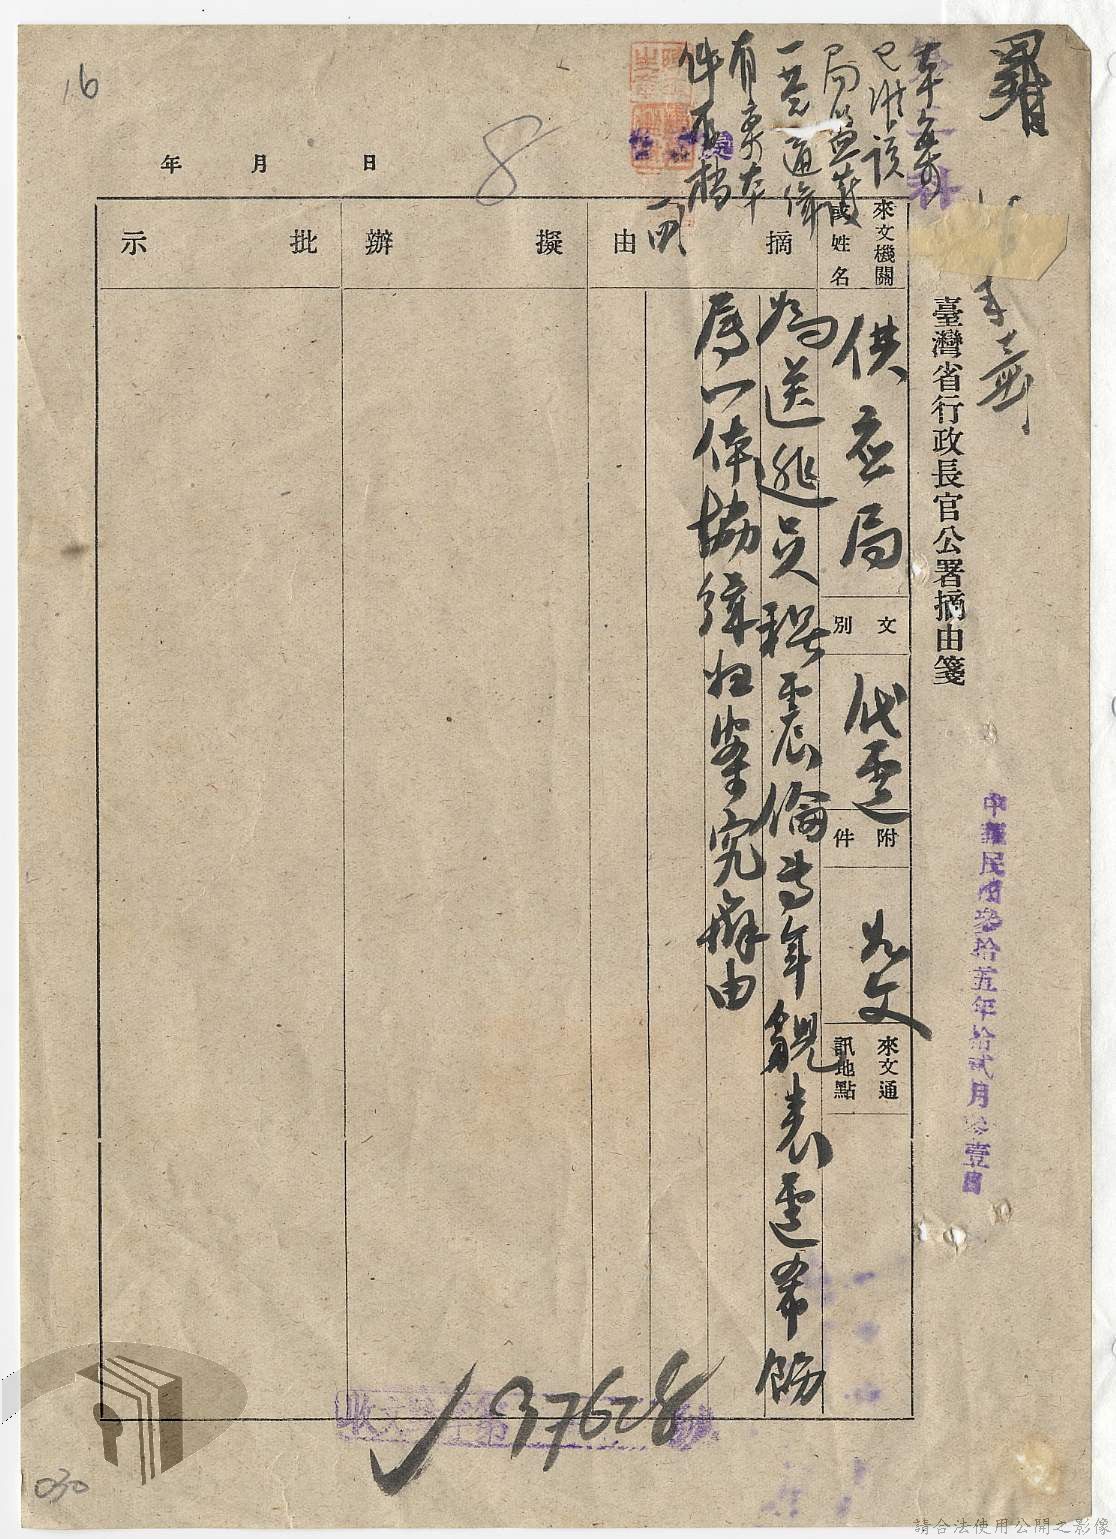 臺灣省行政長官公署摘由箋
中華民國參拾五年拾貳月 壹日
本案
已準該
局
一
有案 本
件 存檔
來文機關
或姓名
供應局
文別
代電
附件
如文
來文通訊地點
摘由
為送逃員程震倫等年貌表電希飭
屬一体協緝归案究辦由
擬辦
批示
年 月 日
收文 第 號
37628
8
16
030
請合法使用公開之影像